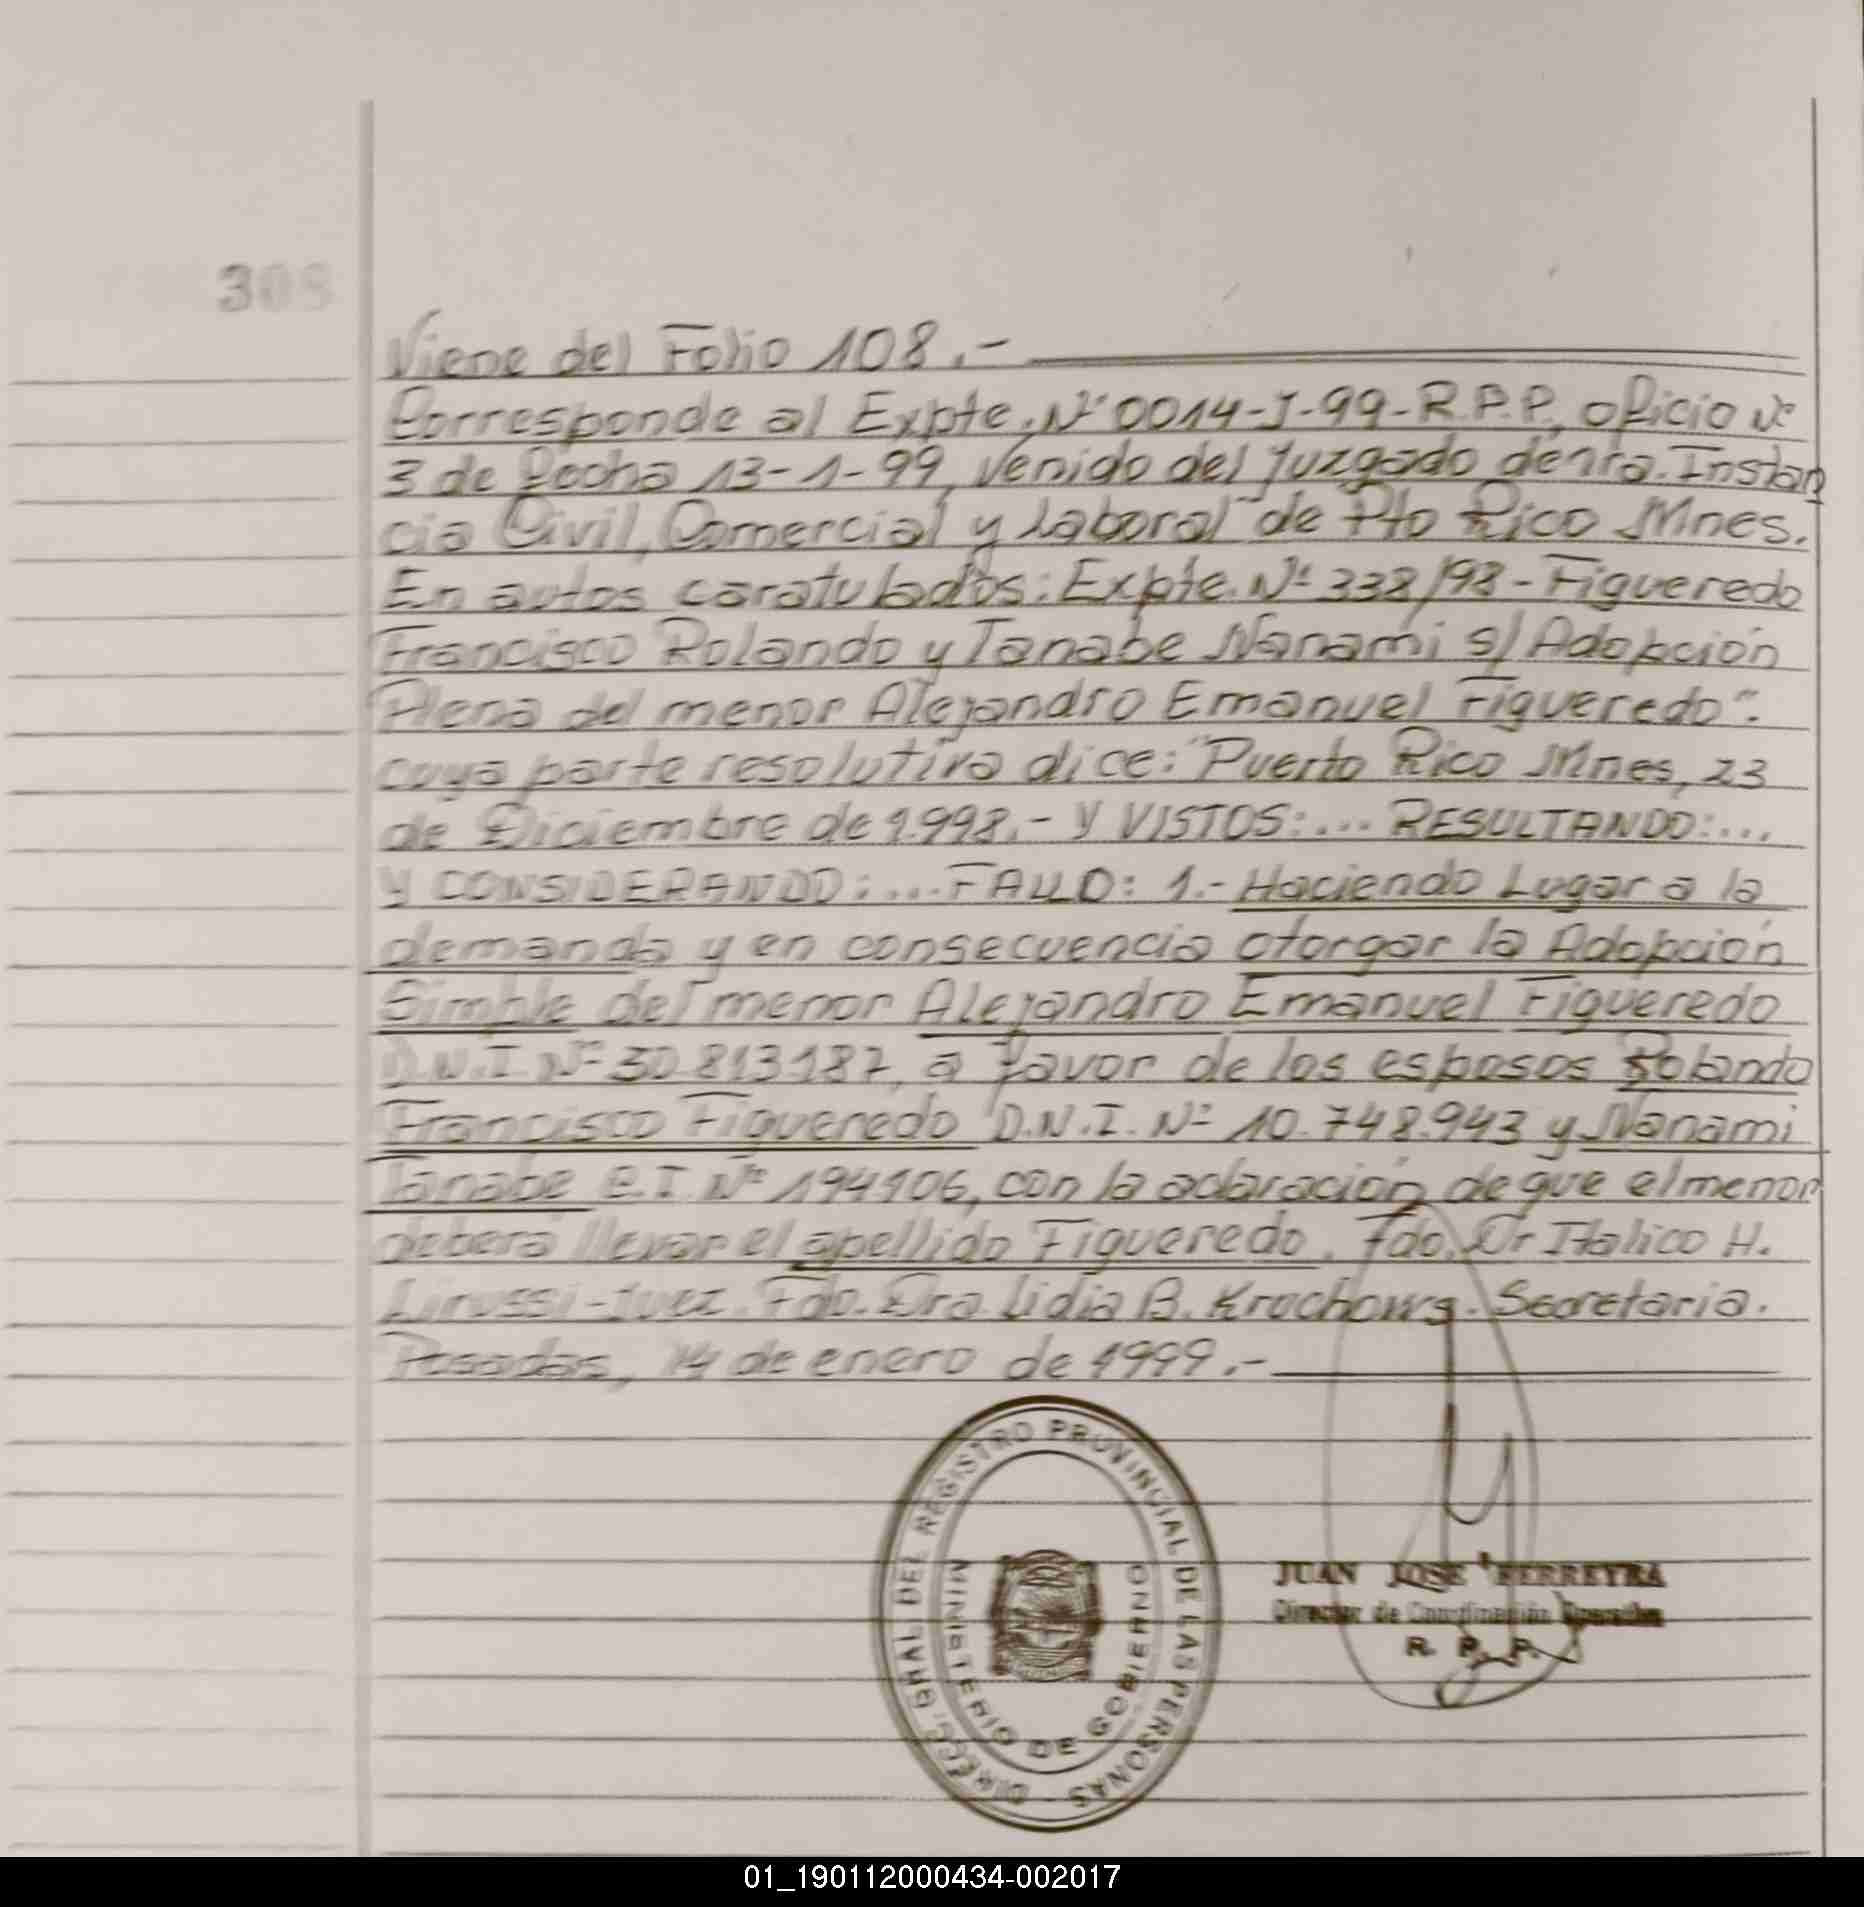 308
Viene del Folio 108.-
Corresponde al Expte. Nº 0014-J-99-R.P.P., oficio Nº
3 de fecha 13-1-99, venido del Juzgado de 1ra. Instan
cia Civil, Comercial y Laboral de Pto Rico Mnes.
En autos caratulados: Expte. Nº 338/98 - Figueredo
Francisco Rolando y Tanabe Nanami s/ Adopción
Plena del menor Alejandro Emanuel Figueredo".
cuya parte resolutiva dice: "Puerto Rico Mnes, 23
de Diciembre de 1.998.- Y VISTOS:... RESULTANDO:...
Y CONSIDERANDO:... FALLO: 1.- Haciendo Lugar a la
demanda y en consecuencia otorgar la Adopción
Simple del menor Alejandro Emanuel Figueredo
D.N.I. Nº 30.813.187, a favor de los esposos Rolando
Francisco Figueredo D.N.I. Nº 10.748.943 y Nanami
Tanabe C.I. Nº 194106, con la aclaración de que el menor
deberá llevar el apellido Figueredo. Fdo. Dr Italico H.
Lirussi-Juez. Fdo. Dra. Lidia B. Krochows. Secretaria.
Posadas, 14 de enero de 1999.-
DIRECC. GRAL. DEL REGISTRO PROVINCIAL DE LAS PERSONAS
MINISTERIO DE GOBIERNO
JUAN JOSE FERREYRA
Director de Coordinación Operativa
R. P. P.
01_190112000434-002017